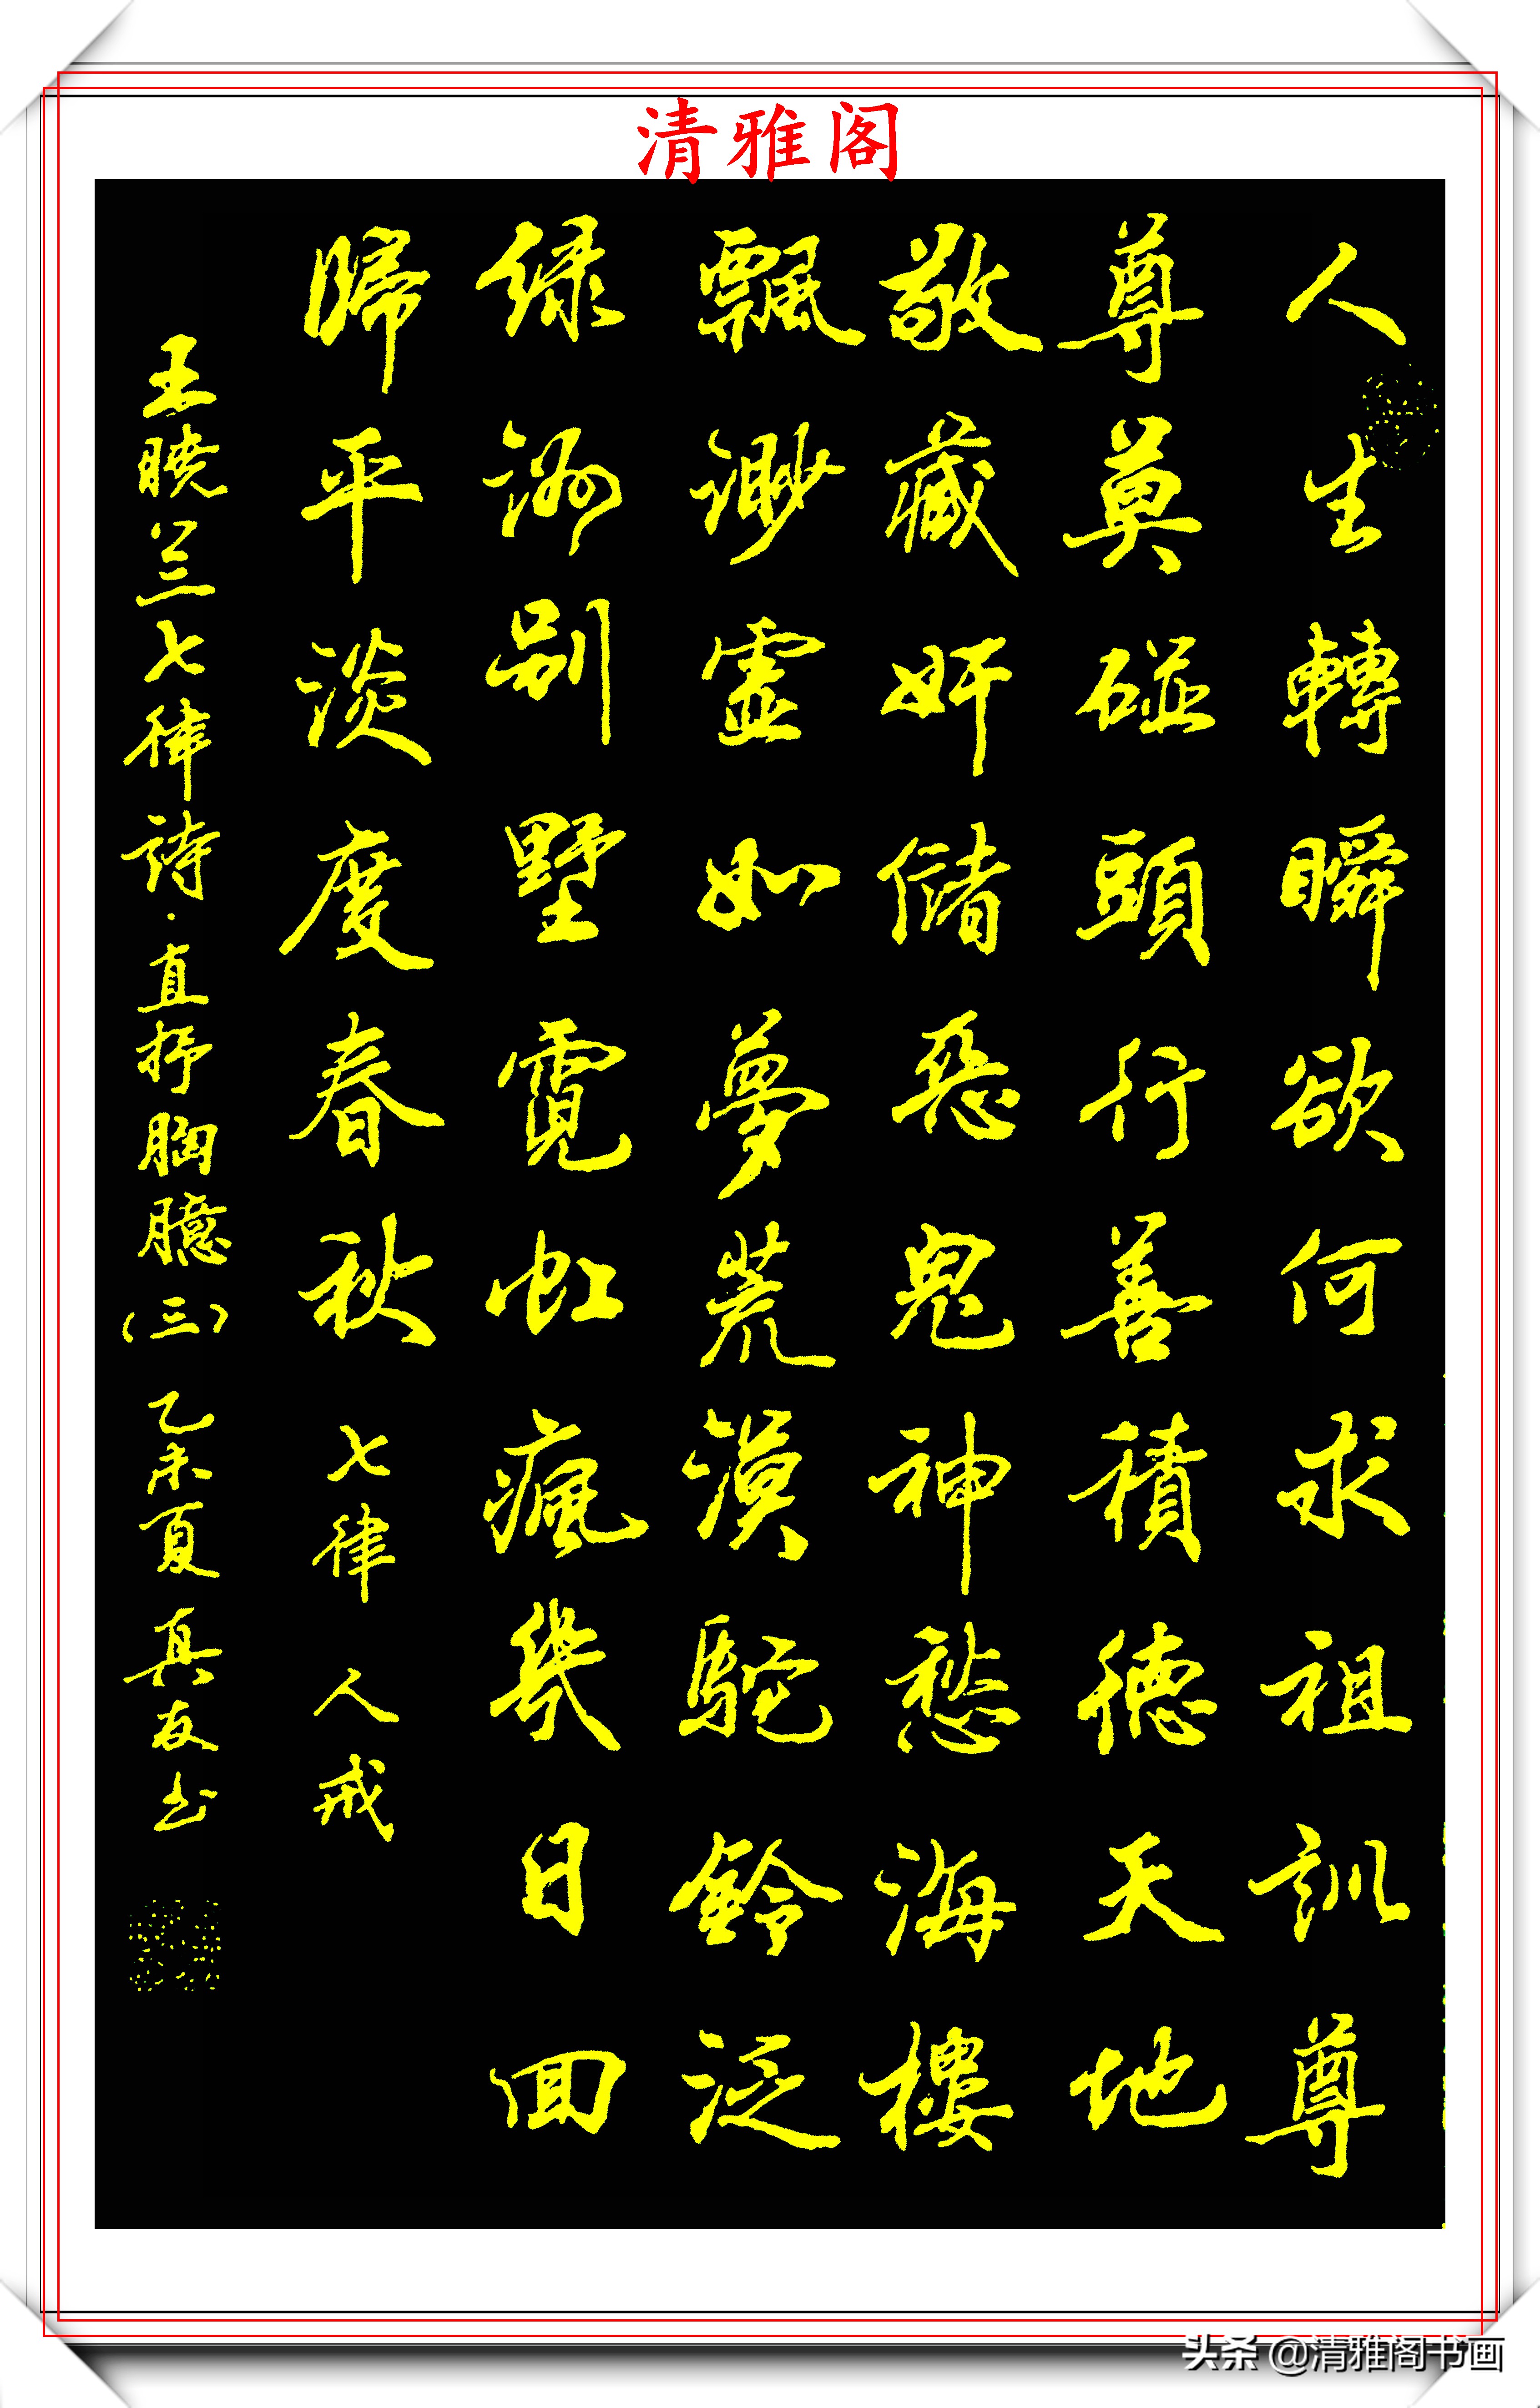 清雅阁
人生轉瞬欲何求祖訓尊
尊莫碰頭行善積德天地
敬藏奸儲惡鬼神愁海樓
飄渺虛如夢荒漠駝鈴泛
綠洲別墅霓虹瘋幾日回
歸平淡度春秋 七律 人戒
王曉兰七律詩·直抒胸臆(三) 乙未夏 真友书
头条 @清雅阁书画